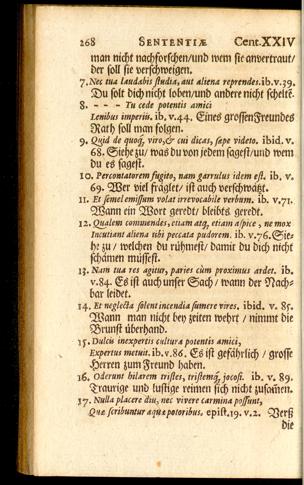 268 SENTENTIÆ Cent. XXIV
man nicht nachforschen/und wem sie anvertraut/
der soll sie verschweigen.
7. Nec tua laudabis studia, aut aliena reprendes. ib. v. 39.
Du solt dich nicht loben/und andere nicht scheltē.
8. - - - Tu cede potentis amici
Lenibus imperiis. ib. v. 44. Eines grossen Freundes
Rath soll man folgen.
9. Quid de quoq;, viro, & cui dicas, sæpe videto. ibid. v.
68. Siehe zu/ was du von jedem sagest/und wem
du es sagest.
10. Percontatorem fugito, nam garrulus idem est. ib. v.
69. Wer viel fräglet/ ist auch verschwätzt.
11. Et semel emissum volat irrevocabile verbum. ib. v. 71.
Wann ein Wort geredt/ bleibts geredt.
12. Qualem commendes, etiam atq, etiam aspice, ne mox
Incutiant aliena tibi peccata pudorem. ib. v. 76. Sie-
he zu/ welchen du rühmest/ damit du dich nicht
schämen müssest.
13. Nam tua res agitur, paries cùm proximus ardet. ib.
v. 84. Es ist auch unser Sach/ wann der Nach-
bar leidet.
14. Et neglecta solent incendia sumere vires. ibid. v. 85.
Wann man nicht bey zeiten wehrt / nimmt die
Brunst überhand.
15. Dulcis inexpertis cultura potentis amici,
Expertus metuit. ib. v. 86. Es ist gefährlich / grosse
Herren zum Freund haben.
16. Oderunt hilarem tristes, tristemq́; jocosi. ib. v. 89.
Traurige und lustige reimen sich nicht zusam̄en.
17. Nulla placere diu, nec vivere carmina possunt,
Quæ scribuntur aquæ potoribus. epist. 19. v. 2. Verß
die